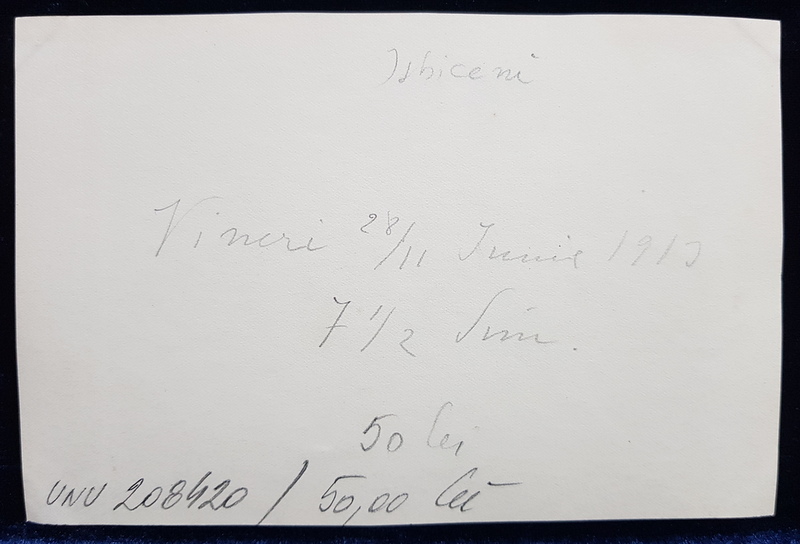 Isbiceni
Vineri 28/11 Iunie 1913
7 1/2 Dim.
50 lei
UNU 208420 / 50,00 lei